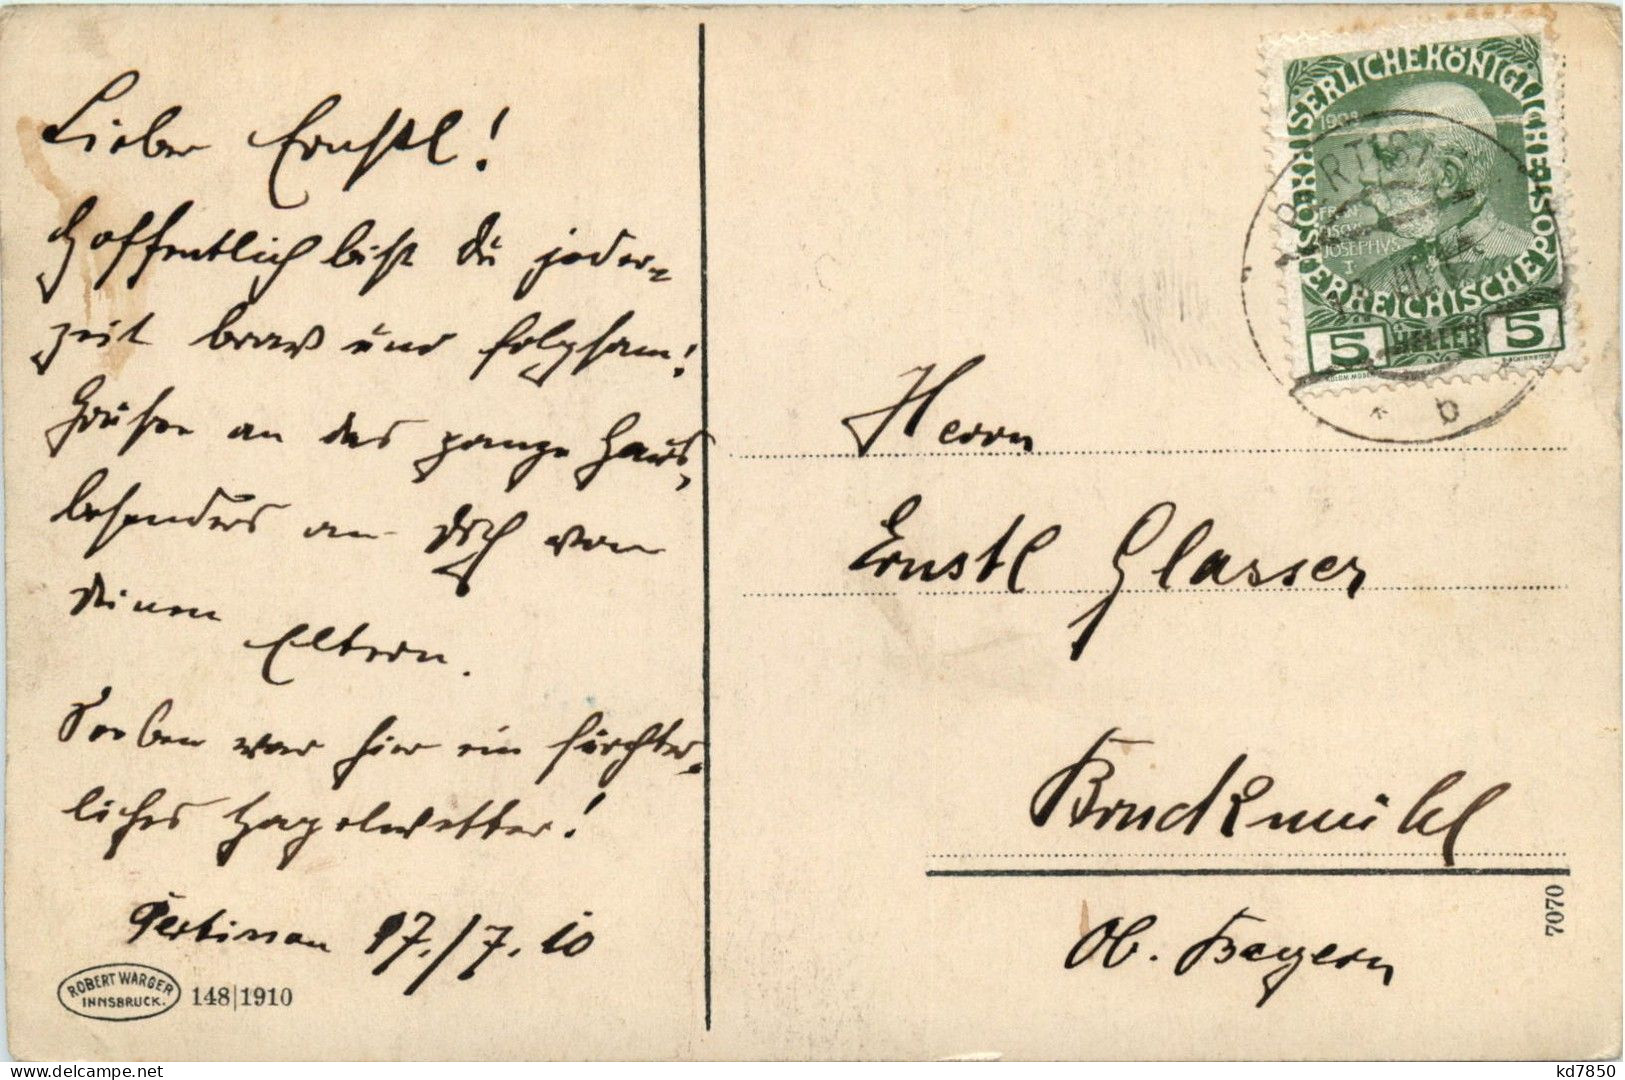 Lieber Ernstl!
Hoffentlich bist Du jeder-
zeit brav und folgsam!
Grüße an das ganze Haus,
besonders an Dich von
Deinen
Eltern.
Soeben war hier ein fürchter-
liches Hagelwetter!
Pertisau 17./7.10
ROBERT WARGER
INNSBRUCK.
148|1910
KAISERLICHE KÖNIGLICHE ÖSTERREICHISCHE POST
1908
JOSEPHVS
I
5 HELLER 5
PERTISAU
b
Herrn
Ernstl Glasser
Bruckmühl
Ob. Bayern
7070
kd7850